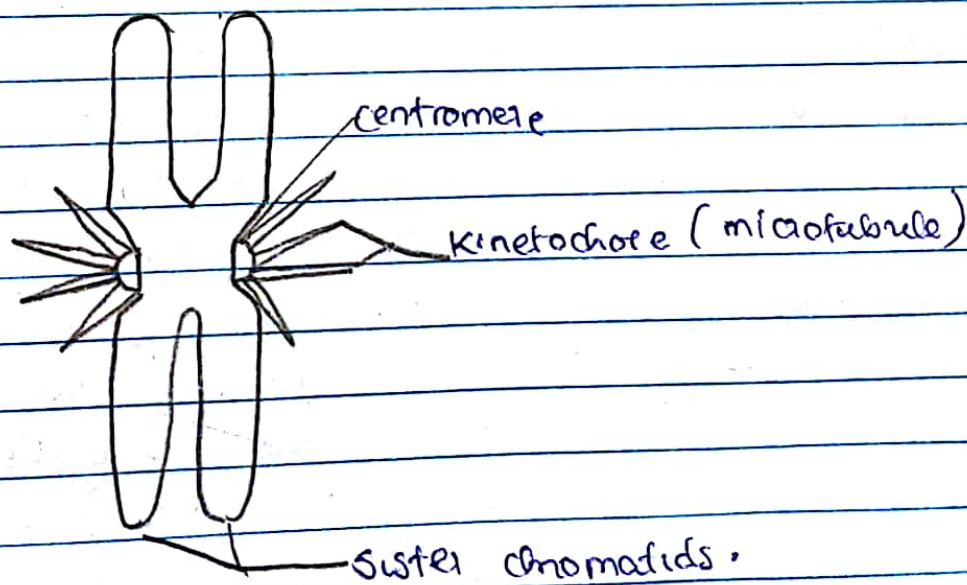 centromere
Kinetochore (microtubule)
Sister chromatids.